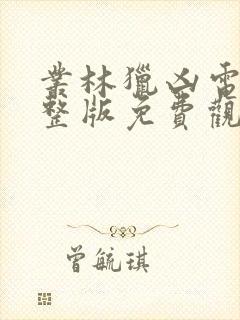 叢林獵凶電
整版免費觀
曾毓琪